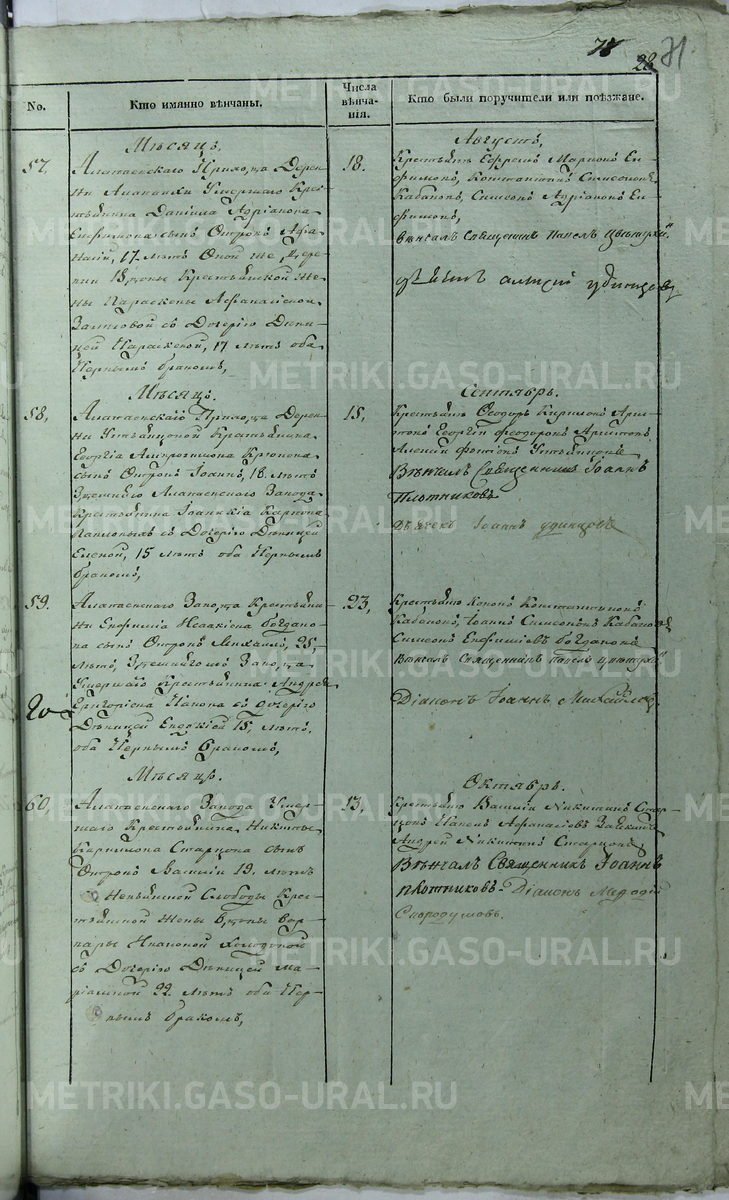 78 28 71
No.
Кто имянно вѣнчаны.
Числа
вѣнча-
нія.
Кто были поручители или поѣзжане.
Мѣсяцъ. Августъ,
57.
Алапаевскаго Прихода Дерев-
ни Алапаихи Умершаго Крес-
тьянина Даніила Адріанова
Евфимова сынъ Отрокъ Афа-
насій, 17. лѣтъ Оной же, Дере-
вни Вдовы Крестьянской Же-
ны Параскевы Афанасіевой
съ Дочерію Дѣви-
цей Параскевой, 17 лѣтъ оба
Первымъ бракомъ,
18.
Крестьянъ Ефремъ Марковъ Ев-
фимовъ, Константинъ Симеоновъ
Кабаковъ, Симеонъ Адріановъ Ев-
фимовъ,
Вѣнчалъ Священникъ Павелъ
Мѣсяцъ. Сентябрь.
58.
Алапаевскаго Прихода Дерев-
ни Устьянцовой Крестьянина
Георгія
сынъ Отрокъ Іоаннъ, 18. лѣтъ
Здѣшняго Алапаевскаго Завода
Крестьянина Карпова
съ Дочерію Дѣвицей
Еленой, 15 лѣтъ оба Первымъ
бракомъ,
15.
Крестьяне Феодоръ Кириловъ
Георгій Феодоровъ
Алексій Устьянцовъ
Вѣнчалъ Священникъ Іоаннъ
Плотниковъ
Дьячекъ Іоаннъ Удинцовъ
59.
Алапаевскаго Завода Крестьяни-
на Евфимія Исаакіева Богдано-
ва сынъ Отрокъ Михаилъ, 25,
лѣтъ, Здѣшнягожъ Завода
Умершаго Крестьянина Андрея
Григоріева Панова съ Дочерію
Дѣвицей Евдокіей 15, лѣтъ.
оба Первымъ бракомъ,
23,
Крестьяне Кононъ Константиновъ
Кабаковъ, Іоаннъ Симеоновъ Кабаковъ
Симеонъ Евфиміевъ Богдановъ
Вѣнчалъ Священникъ Павелъ
Діаконъ Іоаннъ Михайловъ.
Мѣсяцъ. Октябрь.
60.
Алапаевскаго Завода Умер-
шаго Крестьянина, Никиты
Кирилова Старцова сынъ
Отрокъ Василій 19. лѣтъ
Невьянской Слободы Крес-
тьянской Жены Вдовы Вар-
вары Ивановой
съ Дочерію Дѣвицей Ма-
ріамной 22. лѣтъ оба Пер-
вымъ бракомъ,
13.
Крестьяне Василій Никитинъ Стар-
цовъ Павелъ Афанасіевъ
Андрей Никитинъ Старцовъ
Вѣнчалъ Священникъ Іоаннъ
Плотниковъ. Діаконъ Мефодій
Скородумовъ.
METRIKI.GASO-URAL.RU